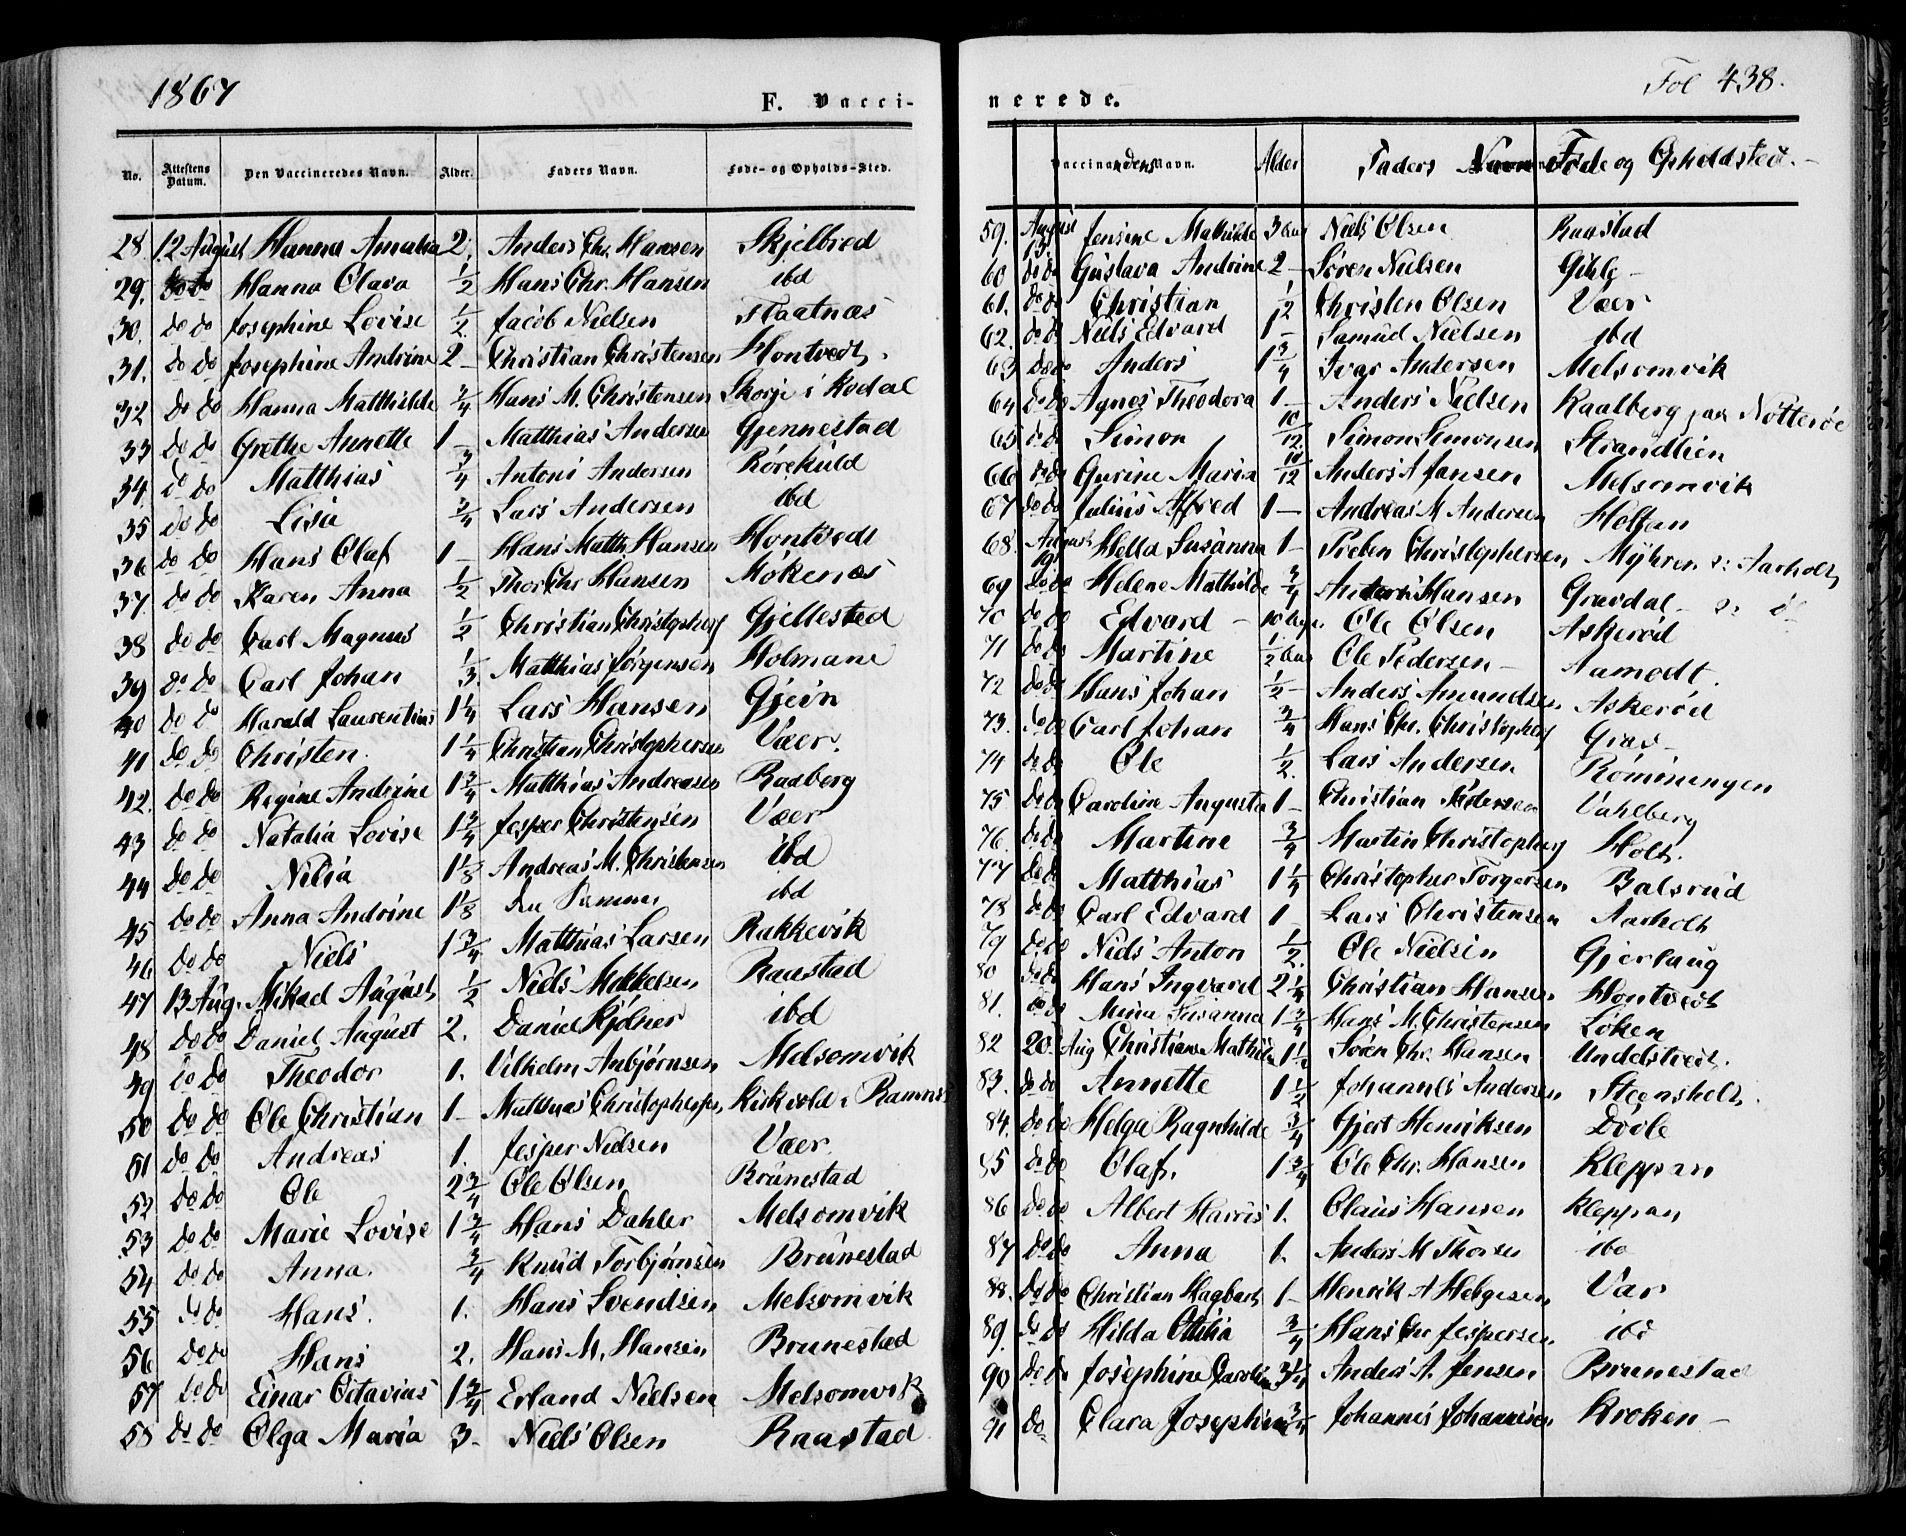 1867
F. Vacci-
No. Attestens Datum. Den Vaccineredes Navn. Alder. Faders Navn. Føde- og Opholds-Sted.
28. 12 August Hanna Amalia 2. Anders Chr. Hansen Skjelbred
29. do do Hanna Clara 1/2 Hans Chr. Hansen ibd
30. do do Josephine Lovise 1/2 Jacob Nielsen Flaatnæs
31. do do Josephine Andrine 2 – Christian Christensen Hontvedt.
32 do do Hanna Matthilde 3/4 Hans M. Christensen Skorje i Kodal
33 do do Grethe Annette 1 – Matthias Andersen Gjennestad
34. do do Matthias 3/4 Antoni Andersen Rørekuld
35 do do Lisa 3/4 Lars Andersen ibd
36 do do Hans Olaf 1 – Hans Matth. Hansen Hontvedt
37. do do Karen Anna 1/2 Thor Chr Hansen Møkenæs
38 do do Carl Magnus 1/2 Christian Christophers Gjellestad
39 do do Carl Johan 1/3. Matthias Jørgensen Holmane
40 do do Harald Laurentius 1 1/4 Lars Hansen Gjein
41 do do Christen. 1 1/4 Christian Christophersen Væer.
42. do do Regine Andrine 1 3/4 Matthias Andreasen Raaberg
43 do do Natalia Lovise 1 3/4 Jesper Christensen Væer
44 do do Nilia 1 1/8 Andreas M. Christensen ibd
45 do do Anna Andrine 1 1/8 den Samme ibd
46 do do Niels 1 3/4 Matthias Larsen Rakkevik
47 13 Aug. Mikael August 1/2 Niels Mikkelsen Raastad
48 do do Daniel August 2. Daniel Kjølner ibd
49 do do Theodor 1. Vilhelm Anbjørnsen Melsomvik
50 do do Ole Christian 1 – Matthias Christophersen Kirkvold i Ramnes
51 do do Andreas 1. Jesper Nielsen Væer.
52 do do Ole 2 3/4 Ole Olsen Brunestad
53 do do Marie Lovise 1 3/4 Hans Dahler Melsomvik
54 do do Anna. 3/4 Knud Torbjørnsen Brunestad
55 do do Hans. 1. Hans Svendsen Melsomvik
56 do do Hans 2. Hans M. Hansen Brunestad
57 do do Einar Octavius 1 3/4 Erland Nielsen Melsomvik
58 do do Olga Maria 3 – Niels Olsen Raastad
Fol 438.
nerede.
Vaccinandens Navn. Alder Faders Navn Føde og Opholdsted. –
59. August 13. Jensine Mathilde 3 Aar Niels Olsen Raastad
60 do do Gustava Andrine 2 – Søren Nielsen Gihle –
61. do do Christian 1/2 Christen Olsen Væer
62. do do Niels Edvard 1 – Samuel Nielsen ibd
63 do do Anders 1 3/4 Ivar Andersen Melsomvik
64 do do Agnes Theodora 1 – Anders Nielsen Kaalberg paa Nøtterøe
65 do do Simon 10/12 Simon Simonsen Strandlien
66 do do Gurine Maria 10/12 Anders A Jansen Melsomvik
67 do do Julius Alfred 1 – Andreas M Andersen Holtan
68. August 19. Hella Susanna 1 – Preben Christophersen Myhren v: Aarholt
69 do do Helene Mathilde 3/4 Anders Hansen Gravdal –
70 do do Edvard – Ole Olsen Askerød
71 do do Martine 1/2 Aar Ole Pedersen – Aamodt.
72 do do Hans Johan 1/2 – Anders Amundsen Askerød
73. do do Carl Johan 3/4 Hans Chr. Christophers Grav –
74 do do Ole 1/2. Lars Andersen Rømmingen
75 do do Caroline Augusta 1 – Christian Pedersen Vahlberg
76 do do Martine 3/4 Martin Christophers Holt.
77 do do Matthias 1 1/4 Christopher Torgersen Balsrud
78 do do Carl Edvard 1 – Lars Christensen Aarholt
79 do do Niels Anton 1/2. Ole Nielsen Gjerhaug
80 do do Hans Ingvard 2 1/4 Christian Hansen Hontvedt
81. do do Mina Susanna 1 3/4 Hans M. Christensen Løken
82 20. Aug Christiane Mathilde 1 1/2 Søren Chr. Hansen Undelstvedt.
83. do do Annette 1 1/2 Johannes Andersen Steensholt.
84. do do Helga Ragnhilde 3/4 Gjert Henriksen Døvle
85 do do Olaf. 1 3/4 Ole Chr. Hansen Kleppan
86 do do Albert Harris 1. Claus Hansen Kleppan
87 do do Anna 1. Anders M Thorsen ibd
88. do do Christian Hagbart 1 – Henrik A Helgesen Vær
89. do do Hilda Ottilia 3/4 Hans Chr Jespersen ibd
90 do do Josephine Caroline 3 1/4 Anders A. Jensen Brunestad
91 do Clara Josephine 3/4 Johannes Johannesen Kroken –